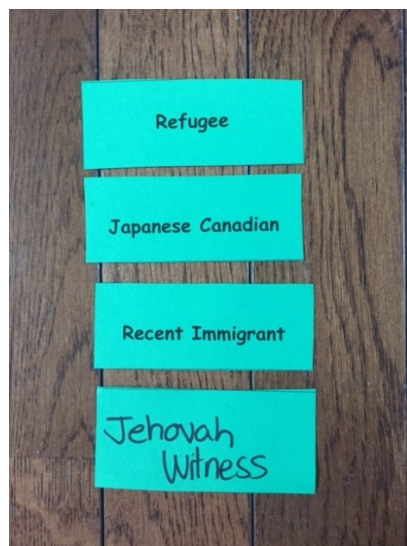 Refugee
Japanese Canadian
Recent Immigrant
Jehovah
Witness